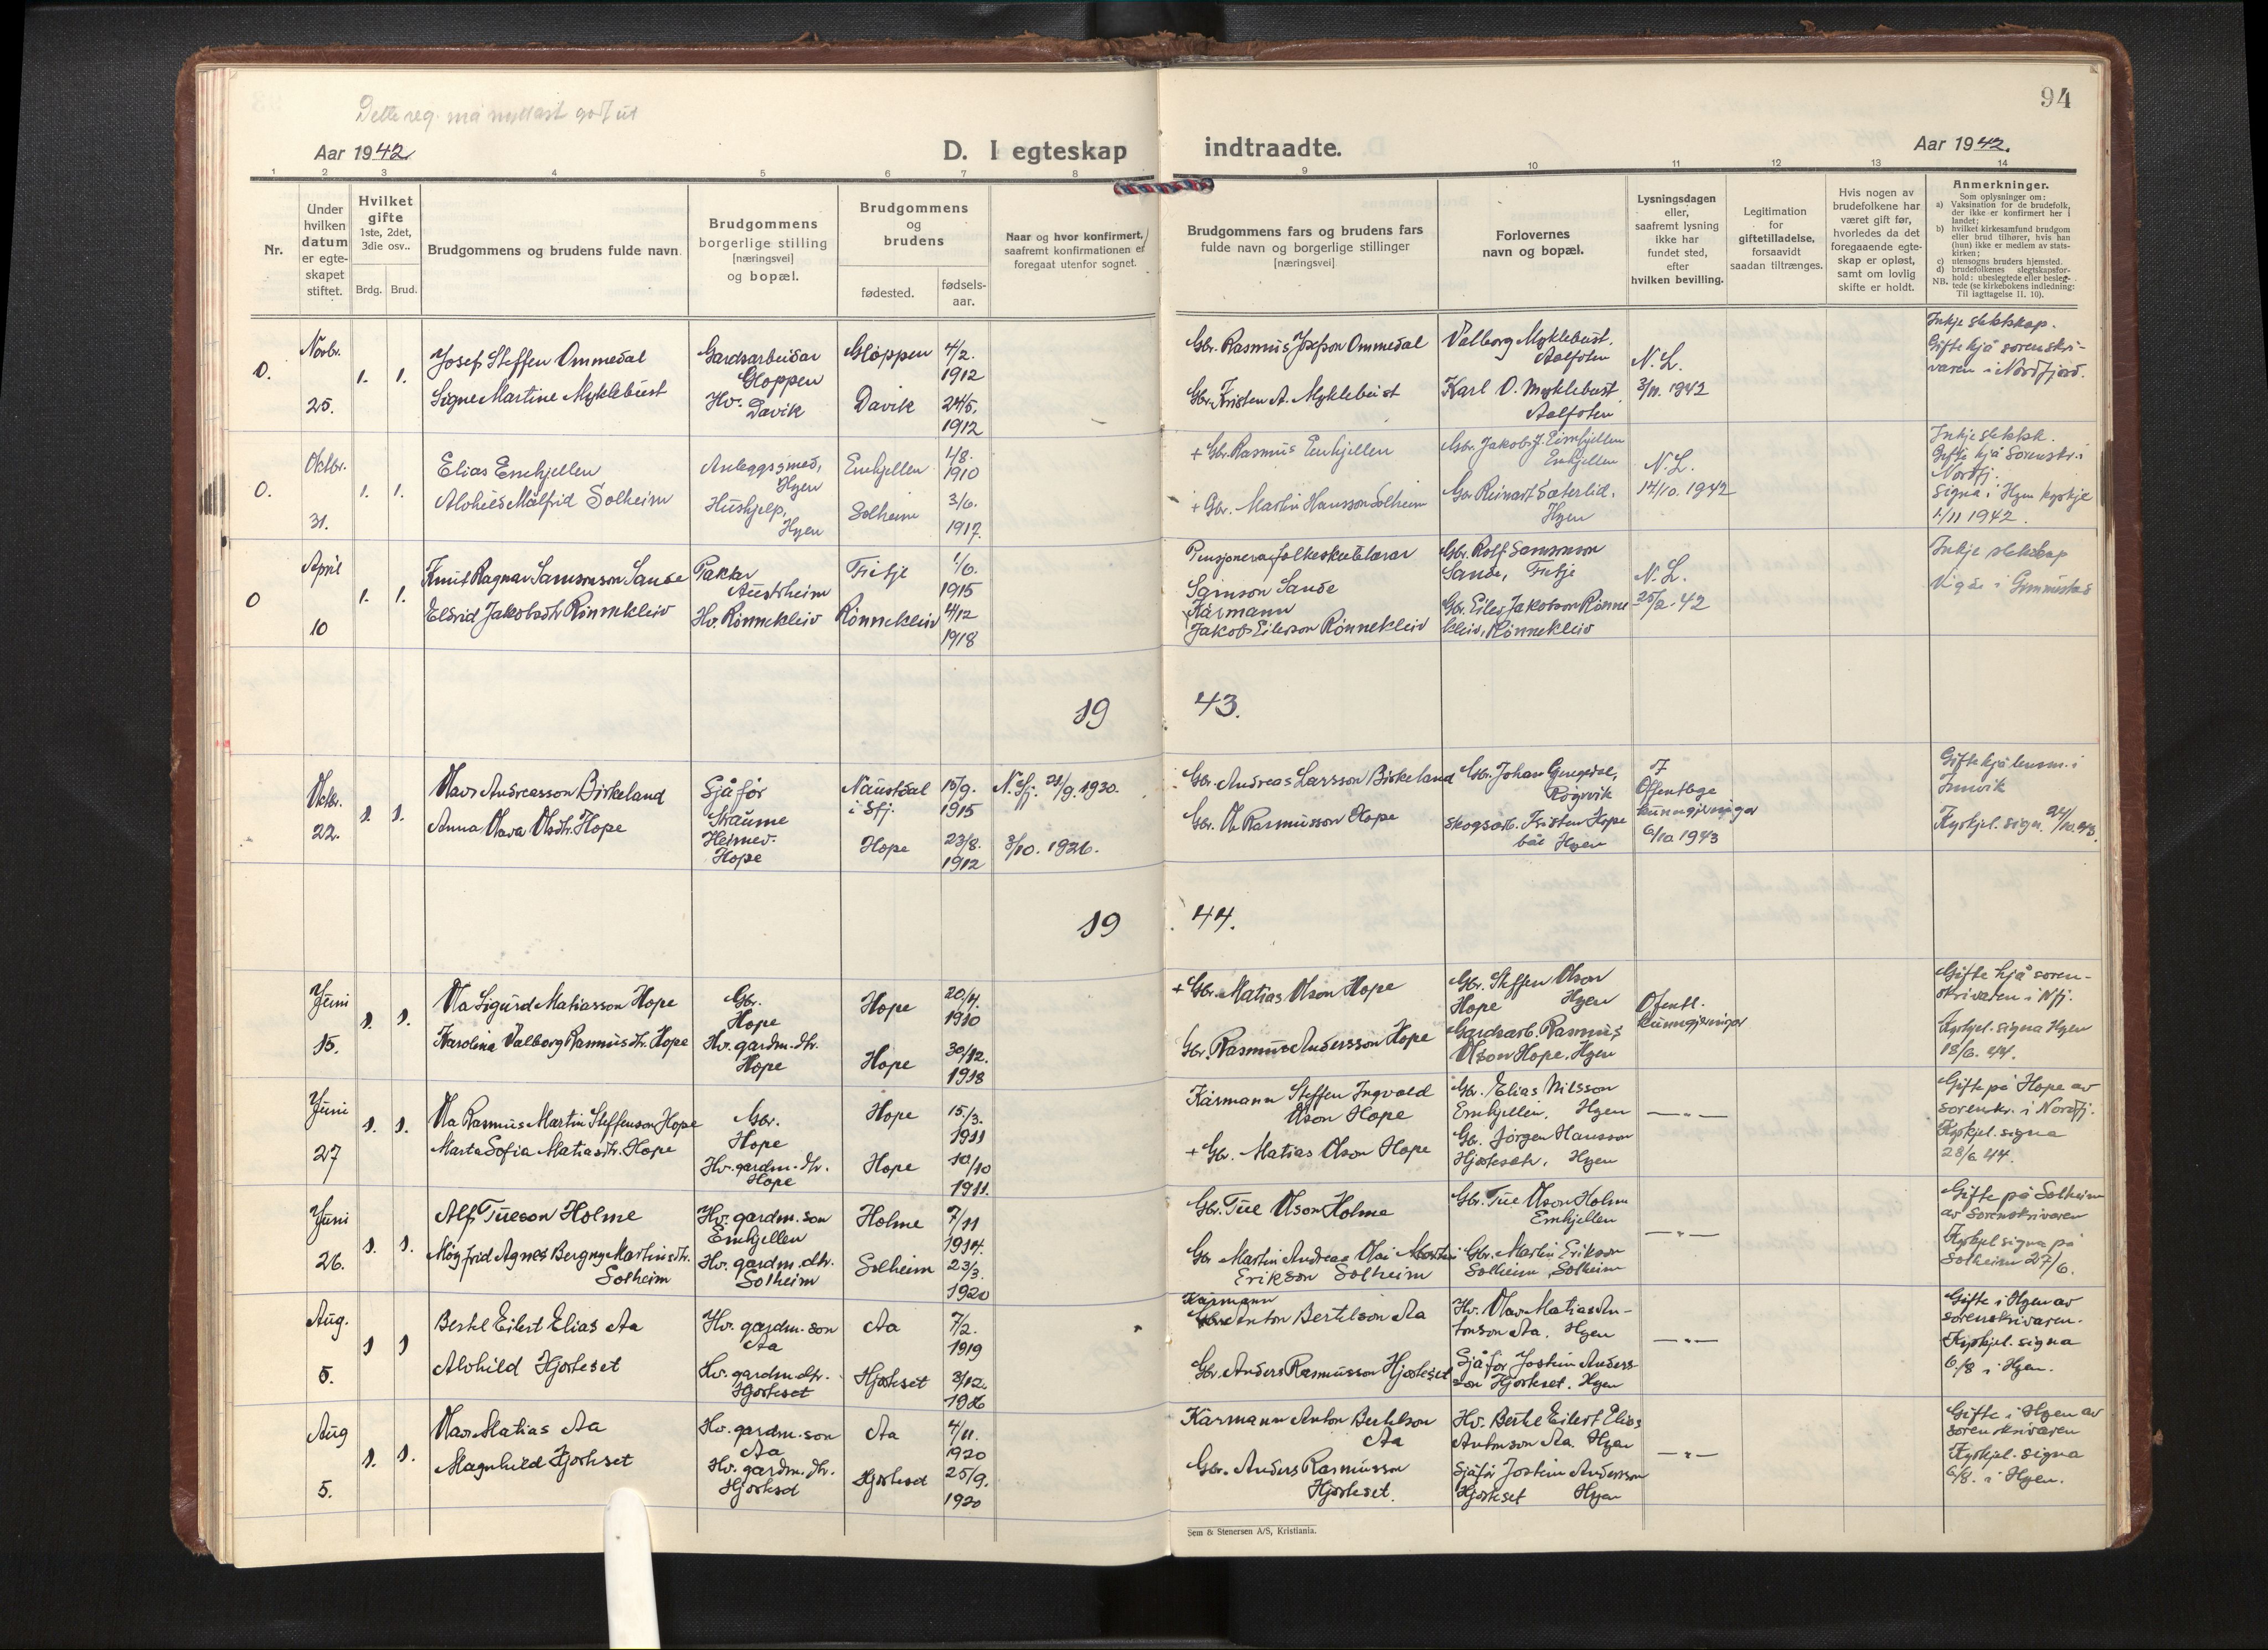 94
Aar 1942
D. I egteskap indtraadte.
Aar 1942.
1 2 3 4 5 6 7 8 9 10 11 12 13 14
Nr.
Under
hvilken
datum
er egte-
skapet
stiftet.
Hvilket
gifte
1ste, 2det,
3die osv..
Brdg. Brud.
Brudgommens og brudens fulde navn.
Brudgommens
borgerlige stilling
[næringsvei]
og bopæl.
Brudgommens
og
brudens
fødested.
fødsels-
aar.
Naar og hvor konfirmert,
saafremt konfirmationen er
foregaat utenfor sognet.
Brudgommens fars og brudens fars
fulde navn og borgerlige stillinger
[næringsvei]
Forlovernes
navn og bopæl.
Lysningsdagen
eller,
saafremt lysning
ikke har
fundet sted,
efter
hvilken bevilling.
Legitimation
for
giftetilladelse,
forsaavidt
saadan tiltrænges.
Hvis nogen av
brudefolkene har
været gift før,
hvorledes da det
foregaaende egte-
skap er opløst,
samt om lovlig
skifte er holdt.
Anmerkninger.
Som oplysninger om:
a) Vaksination for de brudefolk,
der ikke er konfirmert her i
landet;
b) hvilket kirkesamfund brudgom
eller brud tilhører, hvis han
(hun) ikke er medlem av stats-
kirken;
c) utensogns bruders hjemsted.
d) brudefolkenes slegtskapsfor-
hold: ubeslegtede eller besleg-
NB. tede (se kirkebokens indledning:
Til iagttagelse II. 10).
0.
Novbr.
25.
1. 1.
Josef Steffen Ommedal
Signe Martine Myklebust
Gardsarbeidar
Gloppen
Hv.
Davik
Gloppen
Davik
4/2.
1912
24/5.
1912
Gbr. Rasmus Josefson Ommedal
Gbr. Kristen A. Myklebust
Valborg Myklebust,
Aalfoten
Karl O. Myklebust
Aalfoten
N. L.
3/11. 1942
Inkje slektskap.
Gifte hjå sorenskri-
varen i Nordfjord.
0.
Oktbr.
31.
1. 1.
Elias Emhjellen
Alvhild Målfrid Solheim
Anleggssmed,
Hyen
Hushjelp,
Hyen
Emhjellen
Solheim
1/8.
1910
3/6.
1917.
+ Gbr. Rasmus Emhjellen
+ Gbr. Martin Hansson Solheim
Gbr. Jakob J. Eimhjellen
Emhjellen
Gbr Reinart Sæterlid,
Hyen
N. L.
14/10. 1942
Inkje slektsk.
Gifte hjå Sorenskr. i
Nordfj.
Signa i Hyen kyrkje
1/11 1942.
0
April
10
1. 1.
Knut Ragnar Samsonson Sande
Eldrid Jakobsdtr Rønnekleiv
Paktar
Austrheim
Hv. Rønnekleiv
Tistje
Rønnekleiv
1/6.
1915
4/12
1918
Pensjonera folkeskulelærar
Samson Sande
Kårmann
Jakob Eilerson Rønnekleiv
Gbr. Rolf Samsonson
Sande,
Gbr. Eiler Jakobson Rønne
kleiv, Rønnekleiv
N. L.
25/2. 42
Inkje slektskap
Vigde i Gimmestad
19 43.
Oktbr.
22.
1. 1.
Olav Andreasson Birkeland
Anna Olava Olsdtr. Hope
Sjåfør
Straume
Heimev.
Hope
Naustdal
i Sfj.
Hope
15/9.
1915
23/8.
1912
N. Sfj. 21/9. 1930.
3/10. 1926.
Gbr. Andreas Larsson Birkeland
Gbr. Ole Rasmusson Hope
Gbr. Johan Gjengedal,
Skogsarb. Kristen Hope
Hyen
Offentlege
kunngjeringar
6/10 1943
Gifte hjå lensm. i
Innvik
Kyrkjel. sign. 24/10. 43.
19 44.
Juni
15.
1. 1.
Ola Sigurd Matiasson Hope
Karolina Valborg Rasmusdtr. Hope
Gbr.
Hope
Hv. gardm. dtr.
Hope
Hope
Hope
20/4.
1910
30/12.
1918
+ Gbr. Matias Olson Hope
Gbr. Rasmus Andersson Hope
Gbr. Steffen Olson
Hope Hyen
Gardsarb. Rasmus
Olson Hope, Hyen
Ofentl.
kunngjeringar
Gifte hjå soren-
skrivaren i Nfj.
Kyrkjel. signa Hyen
18/6. 44.
Juni
27
1. 1.
Ola Rasmus Martin Steffenson Hope
Marta Sofia Matiasdtr. Hope
Gbr.
Hope
Hv. gardm. dtr.
Hope
Hope
Hope
15/3.
1911
10/10
1911.
Kårmann Steffen Ingvald
Olson Hope
+ Gbr. Matias Olson Hope
Gbr. Elias Nilsson
Emhjellen, Hyen
Gbr. Jørgen Hansson
Hjorteseth, Hyen
—"—
Gifte på Hope av
sorenskr. i Nordfj.
Kyrkjel. signa
28/6 44.
Juni
26.
1. 1.
Alf Tueson Holme
Møyfrid Agnes Bergny Martinsdtr.
Solheim
Hv. gardm. son
Emhjellen
Hv. gardm. dtr.
Solheim
Holme
Solheim
7/11
1914.
23/3.
1920
Gbr. Tue Olson Holme
Gbr Martin Andreas Olai Martin
Erikson Solheim
Gbr. Tue Olson Holm
Emhjellen
Gbr. Martin Erikson
Solheim, Solheim
—"—
Gifte på Solheim
av Sorenskrivaren
Kyrkjel signa på
Solheim 27/6.
Aug.
5.
1 1
Bertel Eilert Elias Aa
Alvhild Hjorteset
Hv. gardm. son
Aa
Hv. gardm. dtr.
Hjorteset
Aa
Hjorteset
7/2.
1919
3/12.
1916
Kårmann
Anton Bertelson Aa
Gbr. Anders Rasmusson Hjorteset
Hv. Olav Matias An-
tonson Aa. Hyen
Sjåfør Jostein Anders
son Hjorteset. Hyen
—"—
Gifte i Hyen av
sorenskrivaren.
Kyrkjel. signa
6/8 i Hyen.
Aug
5.
1. 1.
Olav Matias Aa
Magnhild Hjorteset
Hv. gardm. son
Aa
Hv. gardm. dtr.
Hjorteset
Aa
Hjorteset
4/11.
1920
25/9.
1920
Kårmann Anton Bertelson
Aa
Gbr. Anders Rasmusson
Hjorteset.
Hv. Bertel Eilert Elias
Antonson Aa. Hyen
Sjåfør Jostein Andersson
Hjorteset Hyen
—"—
Gifte i Hyen av
sorenskrivaren
Kyrkjel. signa
6/8. i Hyen.
Sem & Stenersen A/S, Kristiania.